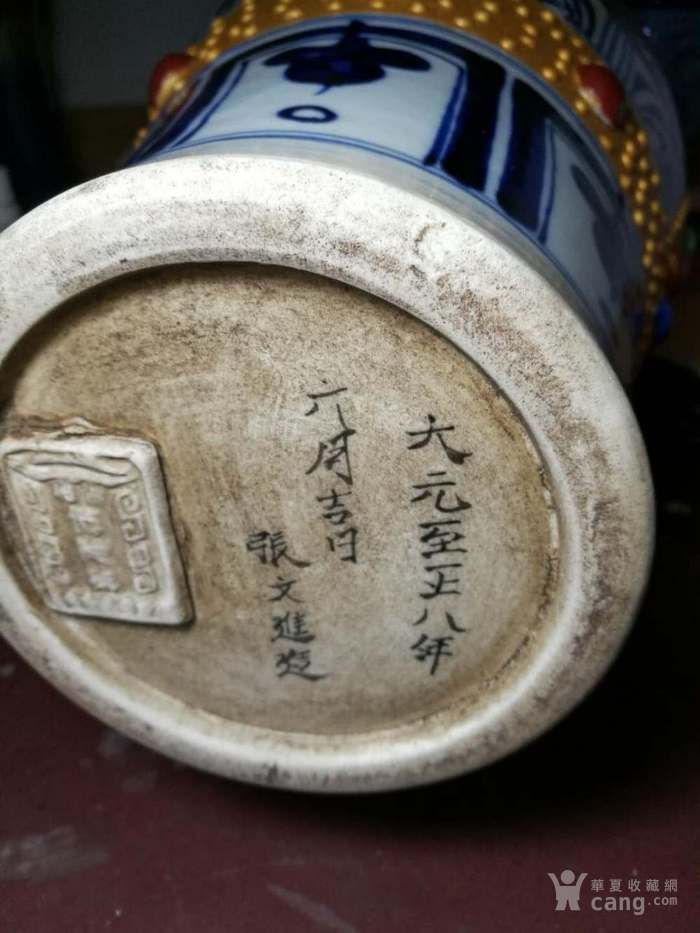 大元至正八年
六月吉日
張文進題
華夏收藏網
cang.com